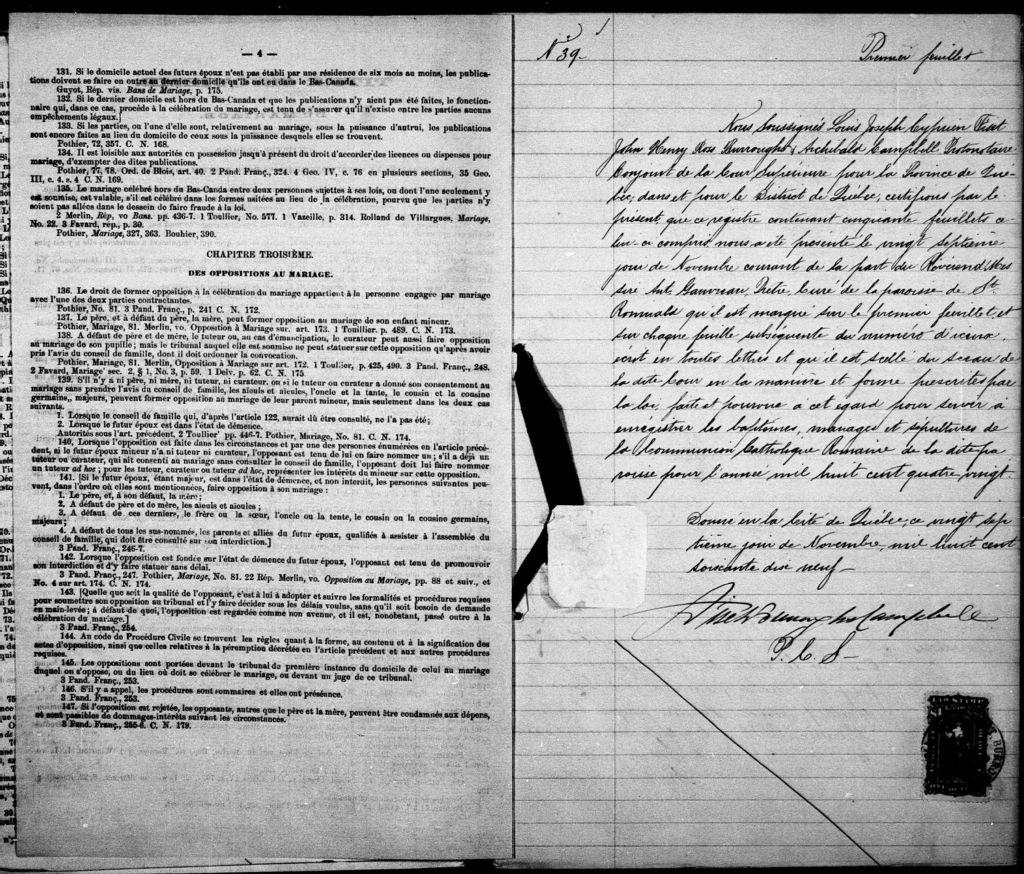 — 4 —
131. Si le domicile actuel des futurs époux n'est pas établi par une résidence de six mois au moins, les publica-
tions doivent se faire en outre au dernier domicile qu'ils ont eu dans le Bas-Canada.
Guyot, Rép. vis. Bans de Mariage, p. 175.
132. Si le dernier domicile est hors du Bas-Canada et que les publications n'y aient pas été faites, le fonction-
naire qui, dans ce cas, procède à la célébration du mariage, est tenu de s'assurer qu'il n'existe entre les parties aucuns
empêchements légaux.]
133. Si les parties, ou l'une d'elle sont, relativement au mariage, sous la puissance d'autrui, les publications
sont encore faites au lieu du domicile de ceux sous la puissance desquels elles se trouvent.
Pothier, 72, 357. C. N. 168.
134. Il est loisible aux autorités en possession jusqu'à présent du droit d'accorder des licences ou dispenses pour
mariage, d'exempter des dites publications.
Pothier, 77, 78. Ord. de Blois, art. 40. 2 Pand. Franç., 324. 4 Geo. IV, c. 76 en plusieurs sections, 35 Geo.
III, c. 4. s. 4 C. N. 169.
135. Le mariage célébré hors du Bas-Canda entre deux personnes sujettes à ses lois, ou dont l'une seulement y
est soumise, est valable, s'il est célébré dans les formes usitées au lieu de la célébration, pourvu que les parties n'y
soient pas allées dans le dessein de faire fraude à la loi.
2 Merlin, Rép, vo Bans. pp. 436-7. 1 Toullier, No. 577. 1 Vazeille, p. 314. Rolland de Villargues, Mariage,
No. 22. 3 Favard, rép., p. 30.
Pothier, Mariage, 327, 363. Bouhier, 390.
CHAPITRE TROISIÈME.
DES OPPOSITIONS AU MARIAGE.
136. Le droit de former opposition à la célébration du mariage appartient à la personne engagée par mariage
avec l'une des deux parties contractantes.
Pothier, No. 81. 3 Pand. Franç., p. 241 C. N. 172.
137. Le père, et à défaut du père, la mère, peut former opposition au mariage de son enfant mineur.
Pothier, Mariage, 81. Merlin, vo. Opposition à Mariage sur. art. 173. 1 Touillier. p. 489. C. N. 173.
138. A défaut de père et de mère, le tuteur, ou, au cas d'émancipation, le curateur peut aussi faire opposition
au mariage de son pupille; mais le tribunal auquel elle est soumise ne peut statuer sur cette opposition qu'après avoir
pris l'avis du conseil de famille, dont il doit ordonner la convocation.
Pothier, Mariage, 81. Merlin, Opposition à Mariage sur art. 172. 1 Toullier, p. 425, 490. 3 Pand. Franç., 248.
2 Favard, Mariage' sec. 2. § 1, No. 3, p. 59. 1 Delv. p. 62. C. N. 175.
139. S'il n'y a ni père, ni mère, ni tuteur, ni curateur, ou si le tuteur ou curateur a donné son consentement au
mariage sans prendre l'avis du conseil de famille, les aïeuls et aïeules, l'oncle et la tante, le cousin et la cousine
germains, majeurs, peuvent former opposition au mariage de leur parent mineur, mais seulement dans les deux cas
suivants.
1. Lorsque le conseil de famille qui, d'après l'article 122, aurait dû être consulté, ne l'a pas été;
2. Lorsque le futur époux est dans l'état de démence.
Autorités sous l'art. précédent. 2 Toullier' pp. 446-7. Pothier, Mariage, No. 81. C. N. 174.
140. Lorsque l'opposition est faite dans les circonstances et par une des personnes énumérées en l'article précé-
dent, si le futur époux mineur n'a ni tuteur ni curateur, l'opposant est tenu de lui en faire nommer un; s'il a déjà un
tuteur ou curateur, qui ait consenti au mariage sans consulter le conseil de famille, l'opposant doit lui faire nommer
un tuteur ad hoc; pour les tuteur, curateur ou tuteur ad hoc, représenter les intérêts du mineur sur cette opposition.
141. [Si le futur époux, étant majeur, est dans l'état de démence, et non interdit, les personnes suivantes peu-
vent, dans l'ordre où elles sont mentionnées, faire opposition à son mariage:
1. Le père, et, à son défaut, la mère;
2. A défaut de père et de mère, les aïeuls et aïeules;
3. A défaut de ces derniers, le frère ou la sœur, l'oncle ou la tante, le cousin ou la cousine germains,
majeurs;
4. A défaut de tous les sus-nommés, les parents et alliés du futur époux, qualifiés à assister à l'assemblée du
conseil de famille, qui doit être consulté sur son interdiction.]
3 Pand. Franç., 246-7.
142. Lorsque l'opposition est fondée sur l'état de démence du futur époux, l'opposant est tenu de promouvoir
son interdiction et d'y faire statuer sans délai.
3 Pand. Franç., 247. Pothier, Mariage, No. 81. 22 Rép. Merlin, vo. Opposition au Mariage, pp. 88 et suiv., et
No. 4 sur art. 174. C. N. 174.
143. [Quelque soit la qualité de l'opposant, c'est à lui à adopter et suivre les formalités et procédures requises
pour soumettre son opposition au tribunal et l'y faire décider sous les délais voulus, sans qu'il soit besoin de demande
en main-levée; à défaut de quoi, l'opposition est regardée comme non avenue, et il est, nonobstant, passé outre à la
célébration du mariage.]
3 Pand. Franç., 254.
144. Au code de Procédure Civile se trouvent les règles quant à la forme, au contenu et à la signification des
actes d'opposition, ainsi que celles relatives à la péremption décrétée en l'article précédent et aux autres procédures
requises.
145. Les oppositions sont portées devant le tribunal de première instance du domicile de celui au mariage
duquel on s'oppose, ou du lieu où doit se célébrer le mariage, ou devant un juge de ce tribunal.
3 Pand. Franç., 253.
146. S'il y a appel, les procédures sont sommaires et elles ont préséance.
3 Pand. Franç., 253.
147. Si l'opposition est rejetée, les opposants, autres que le père et la mère, peuvent être condamnés aux dépens,
et sont passibles de dommages-intérêts suivant les circonstances.
3 Pand. Franç., 255-6. C. N. 179.
N° 39-
Premier feuillet
Nous Soussignés Louis Joseph Cyprien Fiset
John Henry Ross Burroughs & Archibald Campbell Protonotaire
Conjoint de la Cour Supérieure pour la Province de Qué-
bec, dans et pour le District de Québec, certifions par le
présent que ce registre contenant cinquante feuillets ce-
lui-ci compris nous a été présenté le vingt septième
jour de Novembre courant de la part du Révérend Mes
sire Ant. Gauvreau, Prêtre Curé de la paroisse de St.
Romuald qu'il est marqué sur le premier feuillet et
sur chaque feuille subséquente du numéro d'iceux
écrit en toutes lettres et qu'il est scellé du sceau de
la dite Cour en la manière et forme prescrites par
la loi, faite et pourvue a cet egard pour servir à
enregistrer les baptêmes, mariages et sépultures de
la Communion Catholique Romaine de la dite pa
roisse pour l'année mil huit cent quatre vingt.
Donné en la Cité de Québec, ce vingt sep
tième jour de Novembre, mil huit cent
soixante dix neuf-
Fiset Burroughs Campbell
P. C. S-